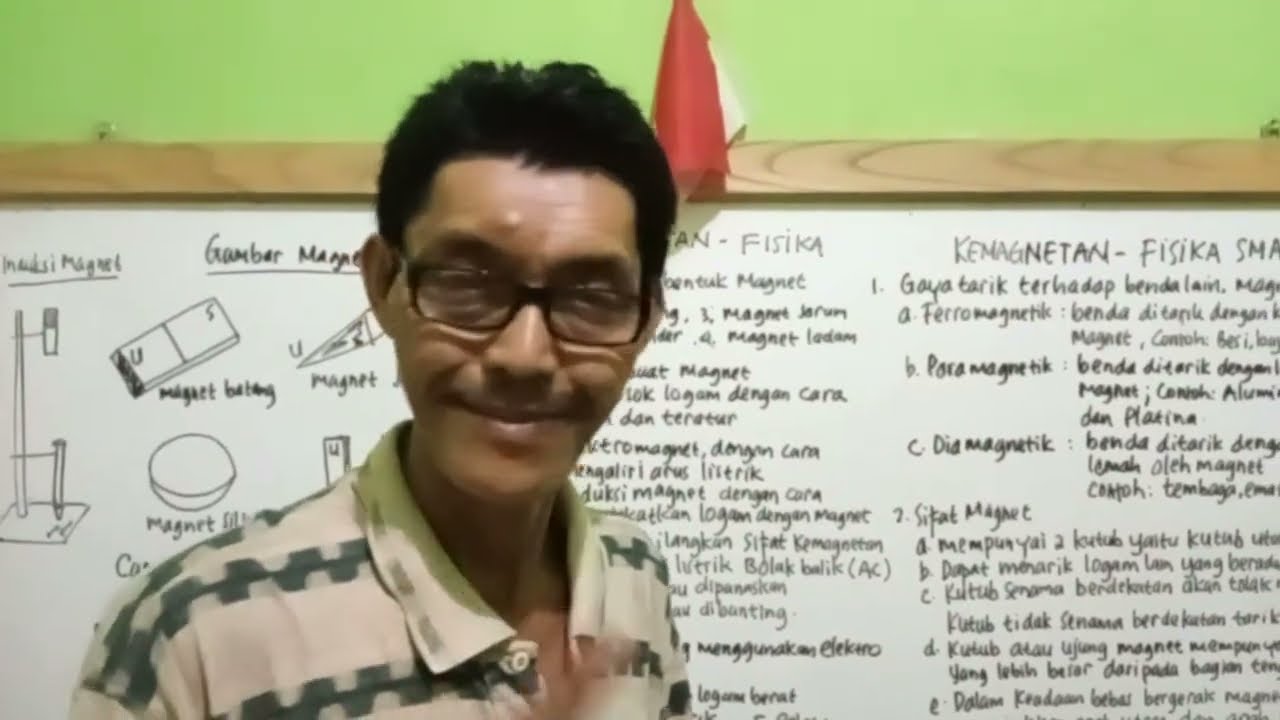 Induksi Magnet
Gambar Magne
S
U
magnet batang
U
magnet
Magnet Sili
U
TAN - FISIKA
bentuk Magnet
g, 3, Magnet Jarum
der .4. Magnet Ladam
uat Magnet
sok logam dengan cara
dan teratur
ktromagnet, dengan cara
engaliri arus listrik
duksi magnet dengan cara
katkan logam dengan Magnet
ilangkan Sifat Kemagnetan
listrik Bolak balik (AC)
au dipanaskan
au dibanting.
g menggunakan elektro
logam berat
KEMAGNETAN - FISIKA SMA
1. Gaya tarik terhadap benda lain. Magn
a. Ferromagnetik : benda ditarik dengan k
Magnet, Contoh: Besi, baj
b. Paramagnetik : benda ditarik dengan l
Magnet; Contoh: Alumi
dan Platina.
c. Diamagnetik : benda ditarik denga
lemah oleh magnet
contoh: tembaga, ema
2. Sifat Magnet
a. mempunyai 2 kutub yaitu kutub uta
b. Dapat menarik logam lain yang berada
c. Kutub Senama berdekatan akan tolak
Kutub tidak Senama berdekatan tarik
d. Kutub atau ujung magnet mempunya
Yang lebih besar daripada bagian ten
e. Dalam Keadaan bebas bergerak magne